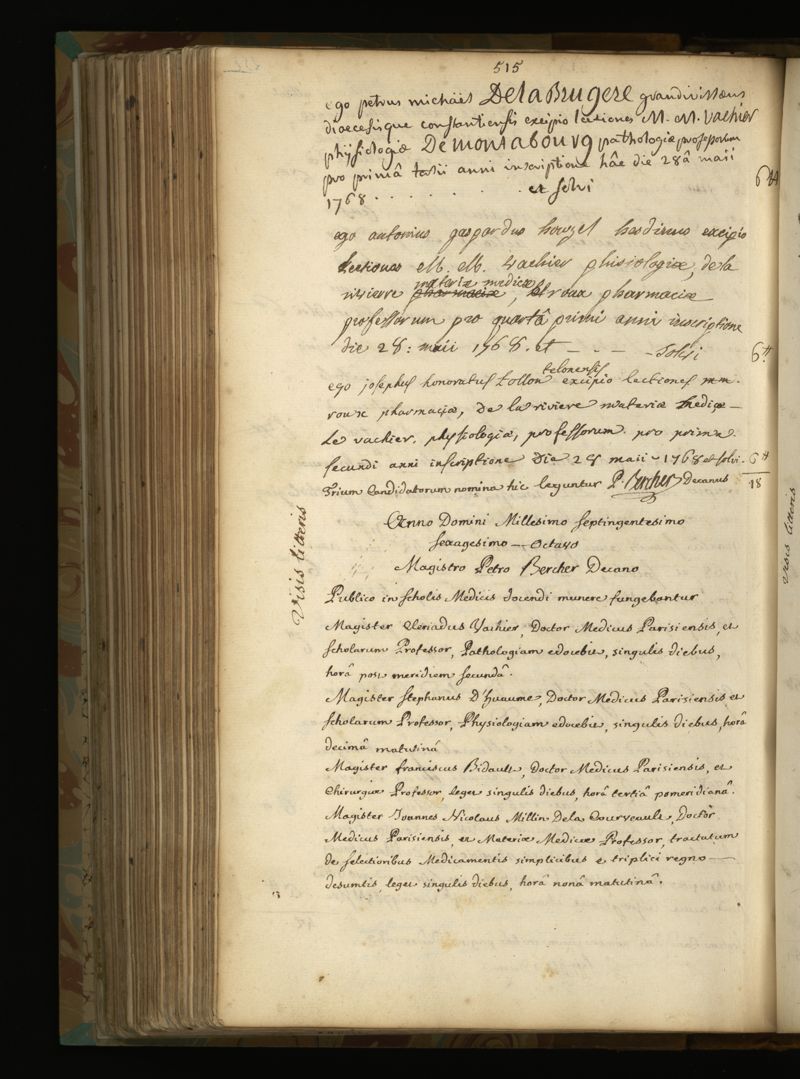 515
ego petrus michaël Delabrugere grandivillæus
dioecesisque constantiensis excipio lectiones M. M. vachier
physiologiæ Demontabourg pathologiæ professorum
pro primâ tertii anni inscriptione hâc die 28â maii
1768 . . . . . . . et solvi 6 tt
ego antonius gaspardus houzel hesdinus excipio
lectiones M. M. vachier phisiologiæ, de la
rivierre materiæ medicæ, roux pharmaciæ
professorum pro quartâ primi anni inscriptione
die 28: maii 1768. et - - - - solvi 6 tt
ego josephus honoratus tollon telonensis excipio lectiones mm.
roux pharmaciæ, De la riviere materiæ medicæ -
Le vachier. physiologiæ, professorum. pro prima
secundi anni inscriptione Die 28 maii - 1768 et solvi. 6 tt
Trium Candidatorum nomina hic leguntur P. Bercher Decanus 18
Visis litteris
Anno Domini Millesimo Septingentesimo
sexagesimo - octavo
Magistro Petro Bercher Decano
Publico in scholis Medicis docendi munere fungebantur
Magister Clariadus Vachier, Doctor Medicus Parisiensis, et
scholarum Professor, Pathologiam edocebit, singulis diebus,
horâ post meridiem secundâ.
Magister Stephanus D'huaume, Doctor Medicus Parisiensis et
scholarum Professor, Physiologiam edocebit, singulis diebus, horâ
decimâ matutinâ
Magister franciscus Bidault, Doctor Medicus Parisiensis, et
Chirurgiæ Professor, leget singulis diebus, horâ tertiâ pomeridianâ.
Magister Joannes Nicolaus Millin De la Courveault, Doctor
Medicus Parisiensis, et Materiæ Medicæ Professor, tractatum
de selectioribus Medicamentis simplicibus è triplici regno -
desumtis, leget singulis diebus, horâ nonâ matutinâ.
Visis litteris